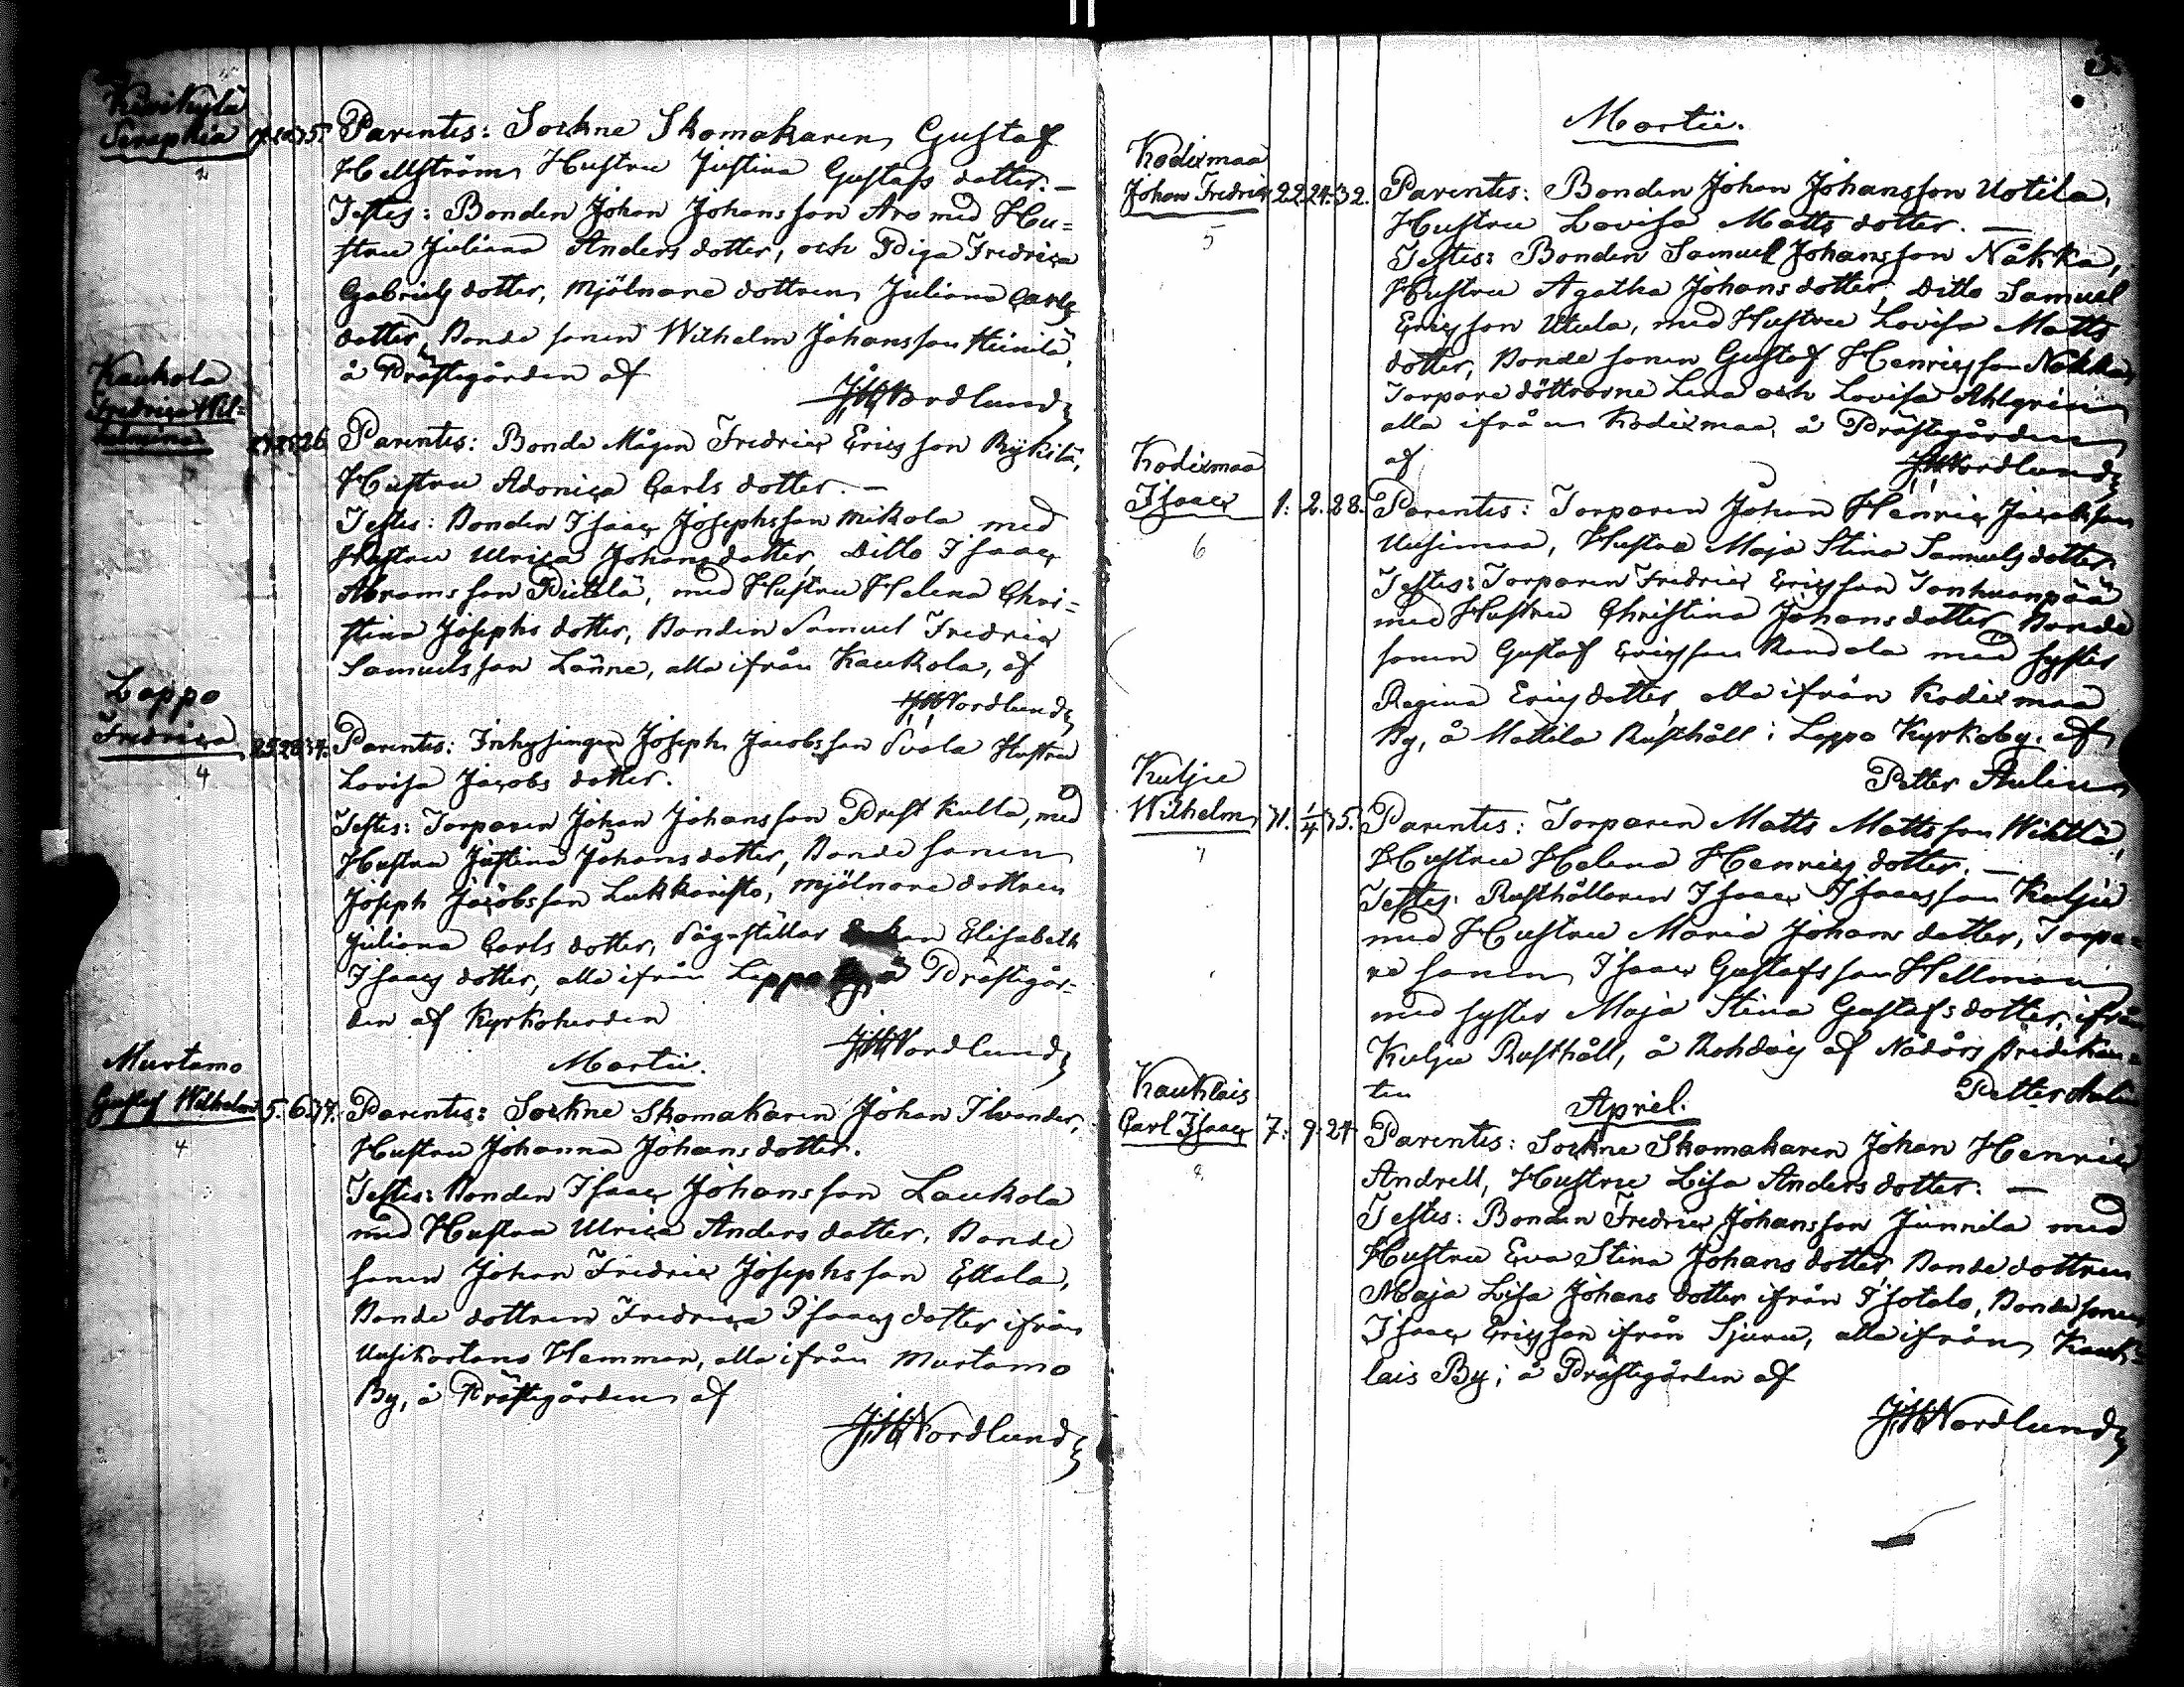 Kävikylä
Seraphia 19. 20. 35. Parentes: Sockne Skomakaren Gustaf
2
Hellström Hustru Justina Gustafs dotter. —
Testes: Bonden Johan Johansson Aro med Hu=
stru Juliana Anders dotter, och Piga Fredrica
Gabriels dotter, mjölnare dottren Juliana Carls
dotter, Bonde sonen Wilhelm Johansson Heinilä,
å Prästegården af
JHNordlund
Kaukola
Fredrica Wil=
helmina 26 Parentes: Bonde Mågen Fredric Ericsson Rykilä,
Hustru Adonica Carls dotter. —
Testes: Bonden Isaac Josephsson Mikola med
Hustru Ulrica Johans dotter, Ditto Isaac
Abramsson Pietilä, med Hustru Helena Chri=
stina Josephs dotter, Bonden Samuel Fredric
Samuelsson Länne, alla ifrån Kaukola, af
JHNordlund
Loppo
Fredrica 25. 26. 37. Parentes: Inhysingen Joseph Jacobsson Svala Hustru
4
Lovisa Jacobs dotter.
Testes: Torparen Johan Johansson Prest kulla, med
Hustru Justina Johans dotter, Bonde sonen
Joseph Jacobsson Lukkaristo, mjölnare dottren
Juliana Carls dotter, Sågställar Elisabeth
Isaacs dotter, alla ifrån Loppo å Prästegår=
den af Kyrkoherden
JHNordlund
Martii.
Murtamo
Gustaf Wilhelm 5. 6. 37. Parentes: Sockne Skomakaren Johan Ilvander,
4
Hustru Johanna Johans dotter.
Testes: Bonden Isaac Johansson Laukola
med Hustru Ulrica Anders dotter, Bonde
sonen Johan Fredric Josephsson Ettala,
Bonde dottren Fredrica Isaacs dotter ifrån
Uusikartano Hemman, alla ifrån Murtamo
By, å Prästegården af
JHNordlund
3.
Martii.
Kodixmaa
Johan Fredric 22. 24. 32. Parentes: Bonden Johan Johansson Uotila,
5
Hustru Lovisa Matts dotter. —
Testes: Bonden Samuel Johansson Nåkka,
Hustru Agatha Johans dotter, Ditto Samuel
Ericsson Utula, med Hustru Lovisa Matts
dotter, Bonde sonen Gustaf Henricsson Nåkka,
Torpare döttrarne Lena och Lovisa Ahlgren
alla ifrån Kodixmaa, å Prästegården
af
JHNordlund
Kodixmaa
Isaac 1. 2. 28. Parentes: Torparen Johan Henric Jacobsson
6
Uusimaa, Hustru Maja Stina Samuels dotter
Testes: Torparen Fredric Ericsson Tanhuanpää
med Hustru Christina Johans dotter, Bonde
sonen Gustaf Ericsson Randala med syster
Regina Erics dotter, alla ifrån Kodixmaa
By, å Mattila Rusthåll i Loppo Kyrkoby, af
Petter Aulin
Kulju
Wilhelm 31. 1/4 35. Parentes: Torparen Matts Mattsson Wihtlä,
7
Hustru Helena Henrics dotter. —
Testes: Rusthållaren Isaac Isaacsson Kulju
med Hustru Maria Johans dotter, Torpa=
re sonen Isaac Gustafsson Hellman
med syster Maja Stina Gustafs dotter, ifrån
Kulju Rusthåll, å Rohdais af Nådårs predikan=
ten
Petter Aulin
April.
Kauklais
Carl Isaac 7. 9. 24. Parentes: Sockne Skomakaren Johan Henric
8
Andrell, Hustru Lisa Anders dotter. —
Testes: Bonden Fredric Johansson Junnila med
Hustru Eva Stina Johans dotter, Bonde dottren
Maja Lisa Johans dotter ifrån Isotalo, Bonde sonen
Isaac Ericsson ifrån Sjuru, alla ifrån Kauk=
lais By, å Prästegården af
JHNordlund